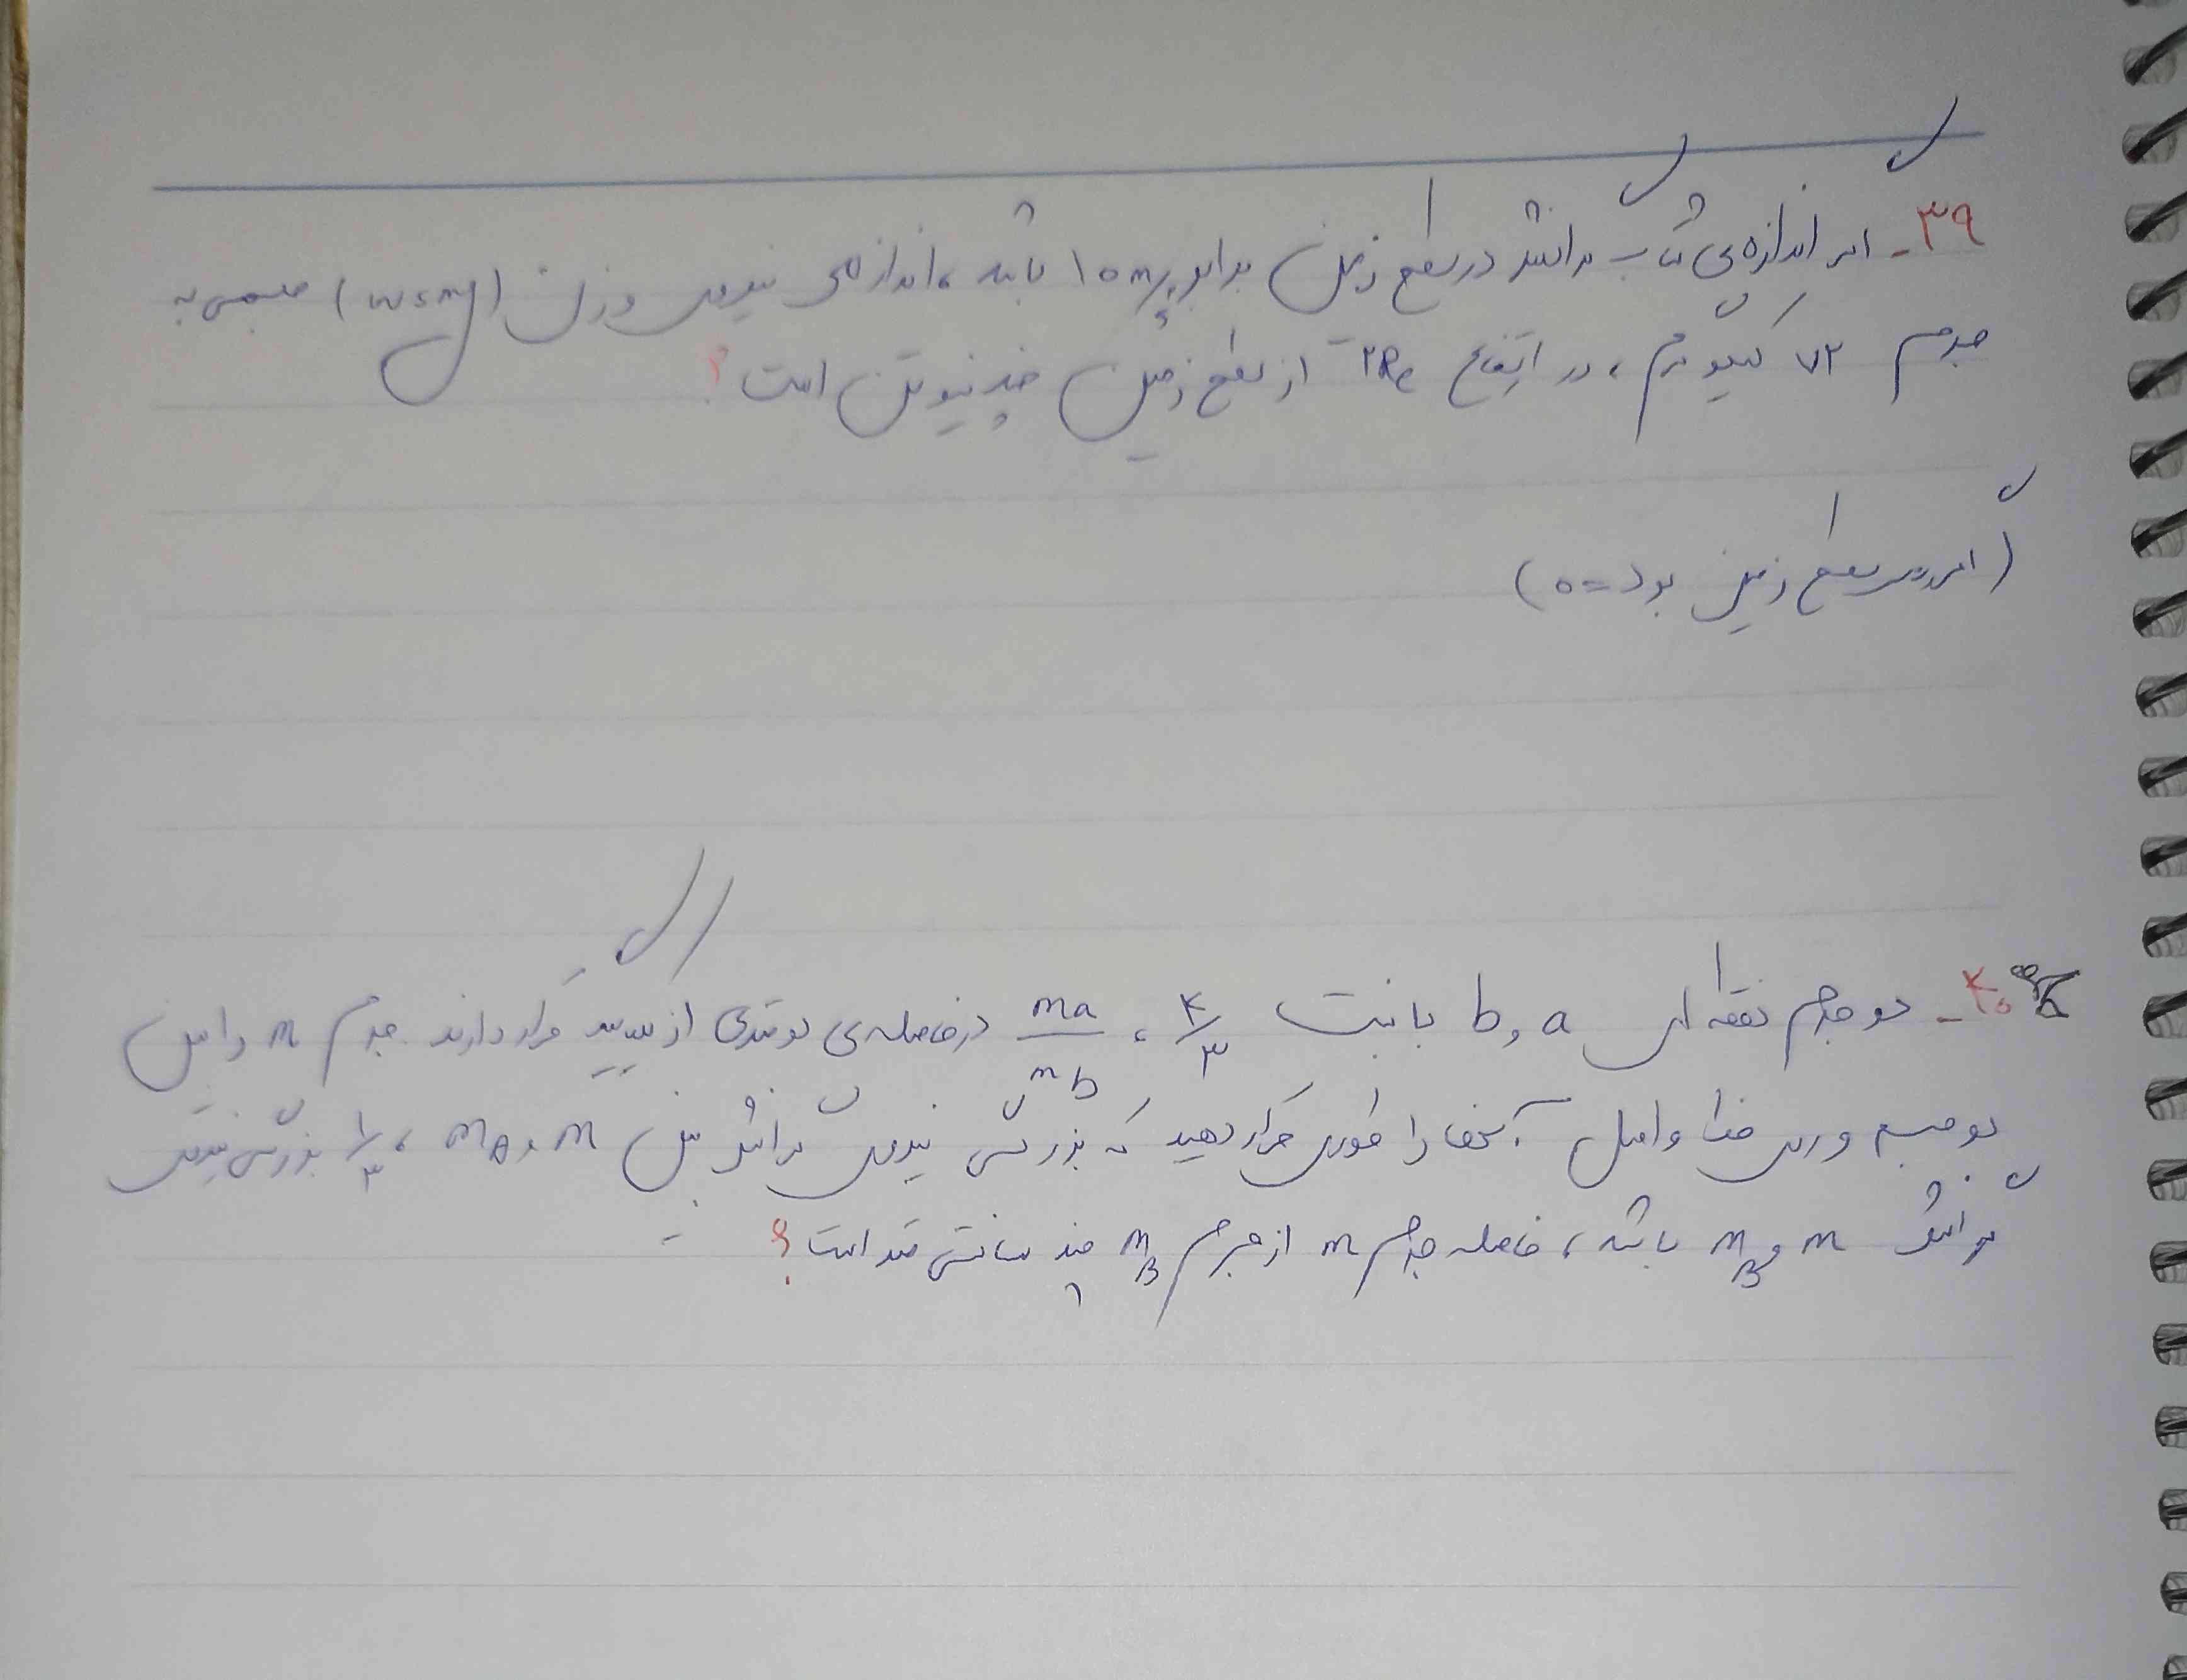 ۳۹- اگر اندازه‌ی شتاب گرانش در سطح زمین برابر ۱۰ m/s² باشد، اندازه‌ی نیروی وزن (w=mg) جسمی به
جرم ۷۲ کیلوگرم، در ارتفاع ۲Re از سطح زمین چند نیوتن است؟
(اگر در سطح زمین بود = ۰)
۴۰- دو جرم نقطه‌ای a و b با نسبت ۴/۳ ، ma/mb در فاصله‌ی دو متری از یکدیگر قرار دارند. جرم m را بین
دو جسم و روی خط واصل آنها را طوری قرار دهید که بزرگی نیروی گرانش بین m و mA ، ۱/۳ بزرگی نیروی
گرانش m و mB باشد، فاصله جرم m از جرم mB چند سانتی متر است؟